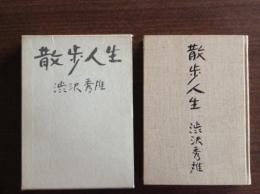 散歩人生
渋沢秀雄
散歩人生
渋沢秀雄